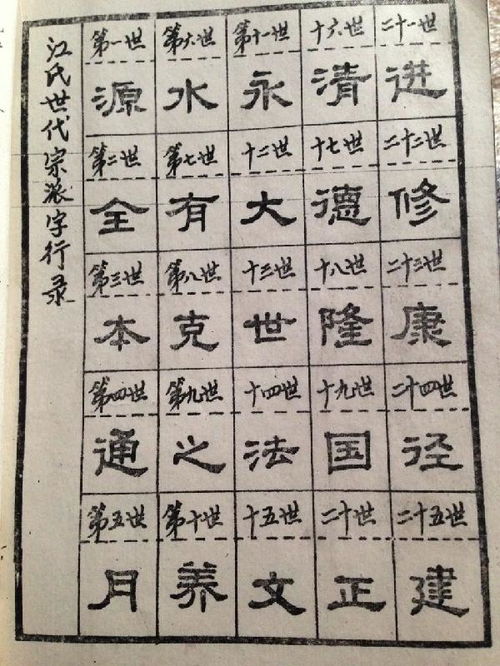 江氏世代宗派字行录
第一世 第六世 第十一世 十六世 二十一世
源 水 永 清 进
第二世 第七世 十二世 十七世 二十二世
全 有 大 德 修
第三世 第八世 十三世 十八世 二十三世
本 克 世 隆 康
第四世 第九世 十四世 十九世 二十四世
通 之 法 国 径
第五世 第十世 十五世 二十世 二十五世
月 养 文 正 建